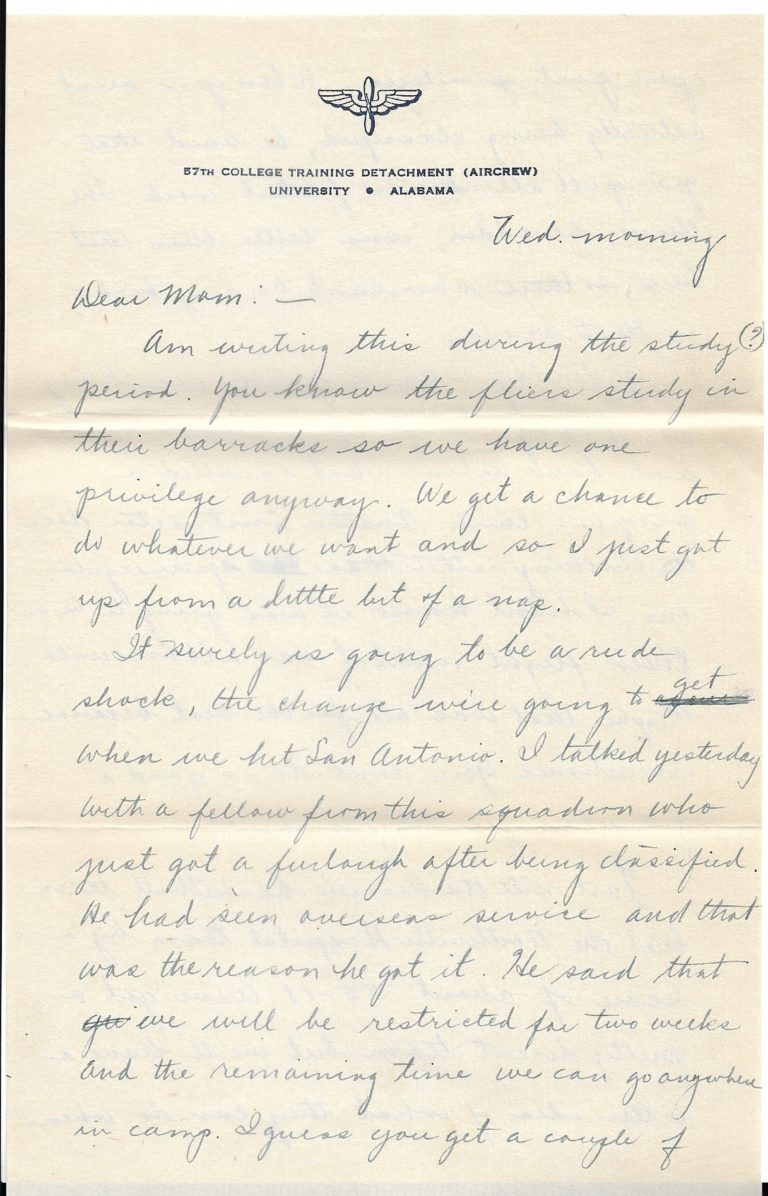 57TH COLLEGE TRAINING DETACHMENT (AIRCREW)
UNIVERSITY • ALABAMA
Wed. morning
Dear Mom: —
Am writing this during the study (?)
period. You know the fliers study in
their barracks so we have one
privilege anyway. We get a chance to
do whatever we want and so I just got
up from a little bit of a nap.
It surely is going to be a rude
shock, the change we're going to get
when we hit San Antonio. I talked yesterday
with a fellow from this squadron who
just got a furlough after being classified.
He had seen overseas service and that
was the reason he got it. He said that
we will be restricted for two weeks
and the remaining time we can go anywhere
in camp. I guess you get a couple of